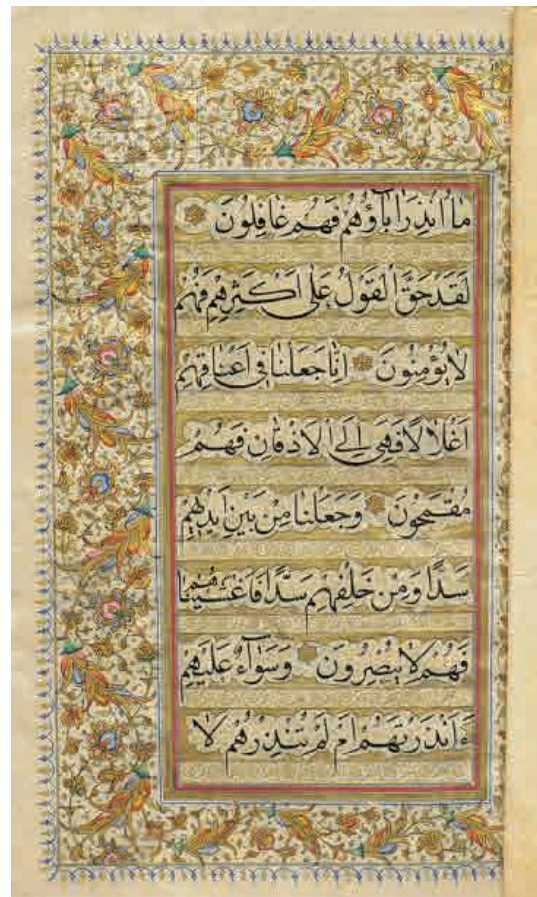 مٰا اُنْذِرَ اٰبآؤُهُمْ فَهُمْ غٰافِلُونَ
لَقَدْ حَقَّ الْقَوْلُ عَلىٰ اَكْثَرِهِمْ فَهُمْ
لا يُؤْمِنُونَ اِنّٰا جَعَلْنٰا فى اَعْنٰاقِهِمْ
اَغْلٰالًا فَهِىَ اِلَى الْاَذْقٰانِ فَهُمْ
مُقْمَحُونَ وَجَعَلْنٰا مِنْ بَيْنِ اَيْدِيهِمْ
سَدًّا وَمِنْ خَلْفِهِمْ سَدًّا فَاَغْشَيْنٰاهُمْ
فَهُمْ لا يُبْصِرُونَ وَسَوٰآءٌ عَلَيْهِمْ
ءَاَنْذَرْتَهُمْ اَمْ لَمْ تُنْذِرْهُمْ لا